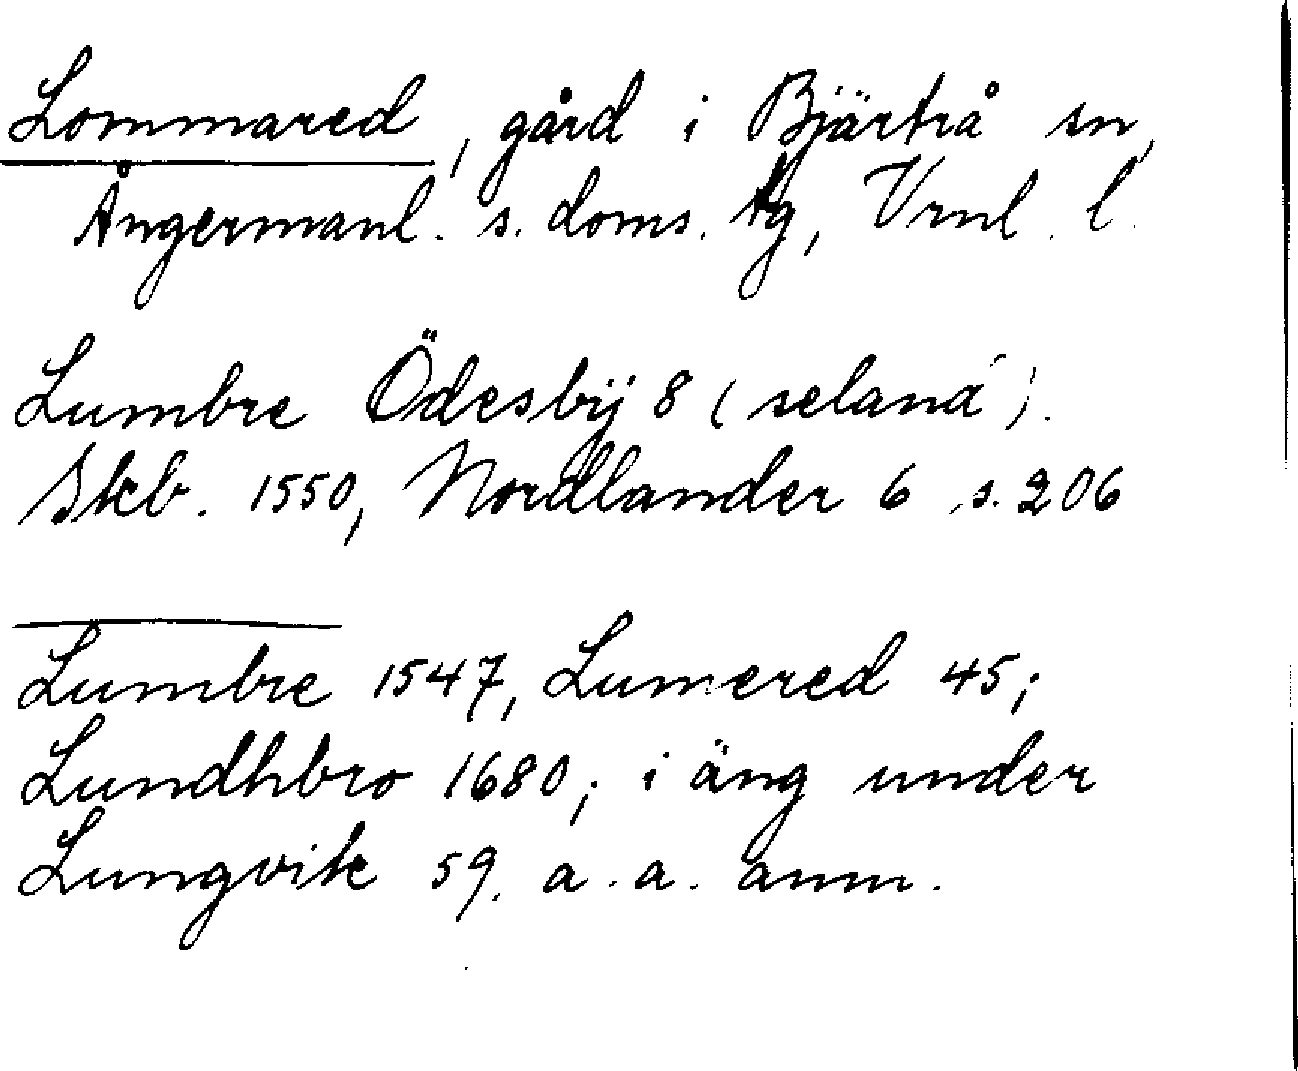 Lommared, gård i Bjärtrå sn,
Ångermanl. s. doms. tg, Vrnl. l.
Lumbre Ödesbÿ 8 (seland).
Skb. 1550, Nordlander 6 s. 206
Lumbre 1547, Lumered 45;
Lundhbro 1680; i äng under
Lungvik 59. a. a. anm.